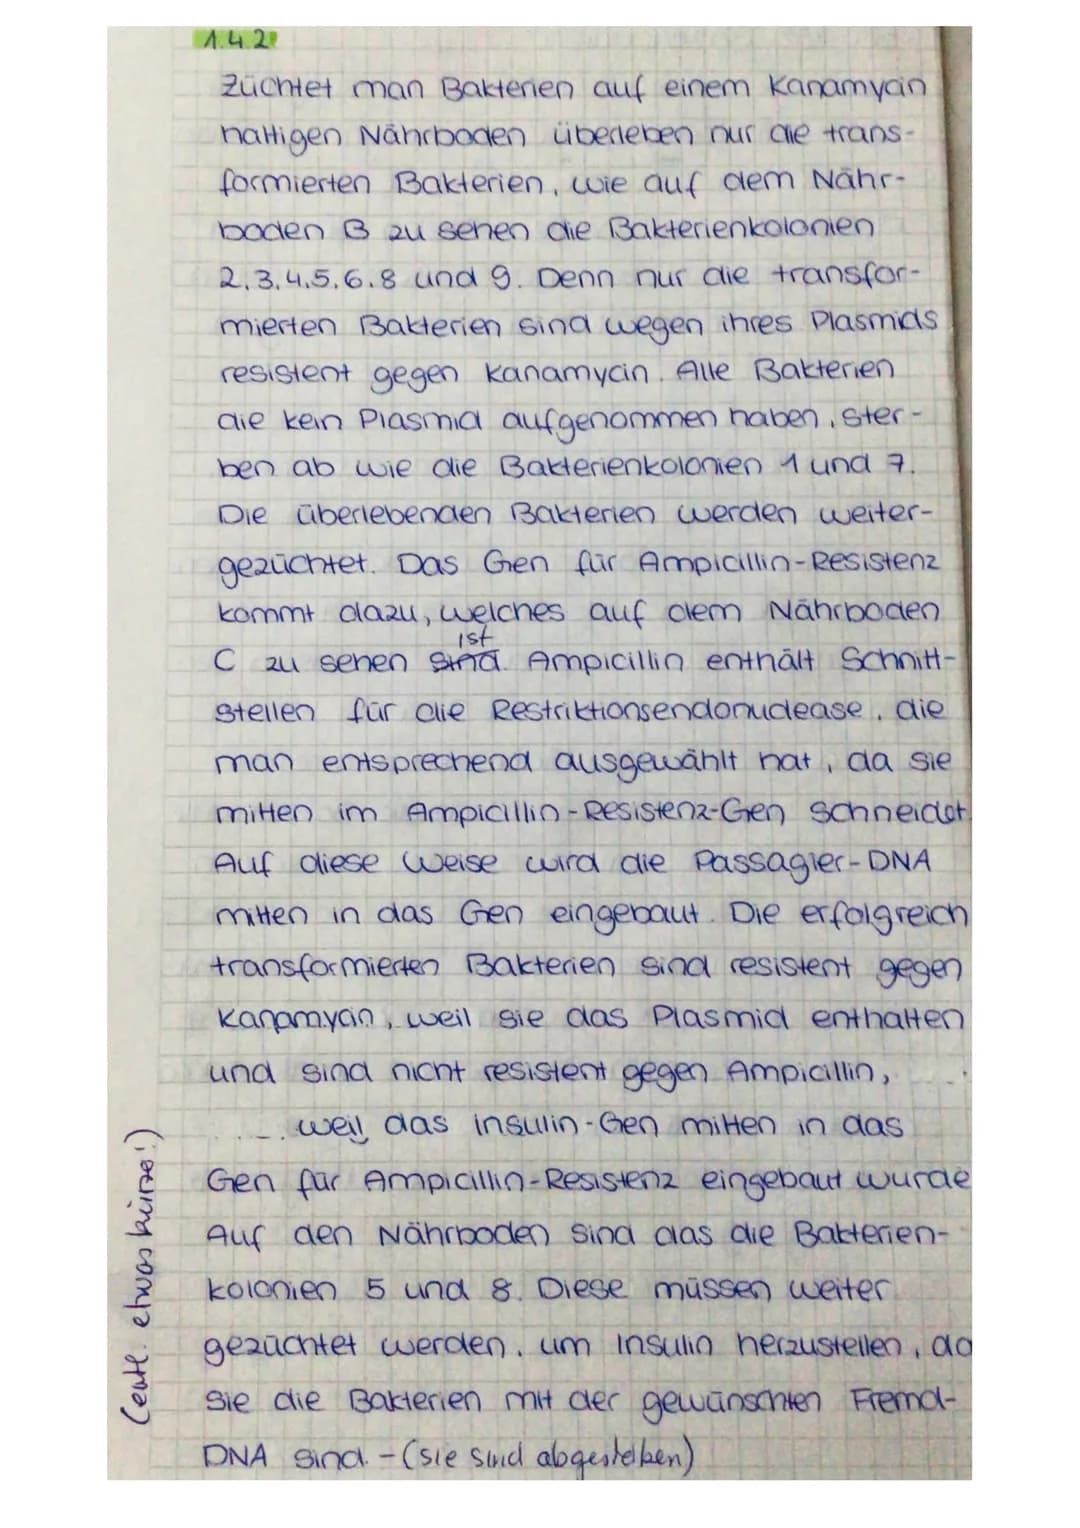 1.4.2
Züchtet man Bakterien auf einem Kanamycin
haltigen Nährboden überleben nur die trans-
formierten Bakterien, wie auf dem Nähr-
boden B zu sehen die Bakterienkolonien
2,3,4,5,6,8 und 9. Denn nur die transfor-
mierten Bakterien sind wegen ihres Plasmids
resistent gegen Kanamycin. Alle Bakterien
die kein Plasmid aufgenommen haben, ster-
ben ab wie die Bakterienkolonien 1 und 7.
Die überlebenden Bakterien werden weiter-
gezüchtet. Das Gen für Ampicillin-Resistenz
kommt dazu, welches auf dem Nährboden
ist
C zu sehen sind. Ampicillin enthält Schnitt-
stellen für die Restriktionsendonudease, die
man entsprechend ausgewählt hat, da sie
mitten im Ampicillin-Resistenz-Gen schneidet
Auf diese Weise wird die Passagier-DNA
mitten in das Gen eingebaut. Die erfolgreich
transformierten Bakterien sind resistent gegen
Kanamycin, weil sie das Plasmid enthalten
und sind nicht resistent gegen Ampicillin,
weil das Insulin-Gen mitten in das
Gen für Ampicillin-Resistenz eingebaut wurde
Auf den Nährboden sind das die Bakterien-
kolonien 5 und 8. Diese müssen weiter
gezüchtet werden, um Insulin herzustellen, da
sie die Bakterien mit der gewünschten Fremd-
DNA sind. - (sie sind abgestorben)
(evtl. etwas kürzer!)